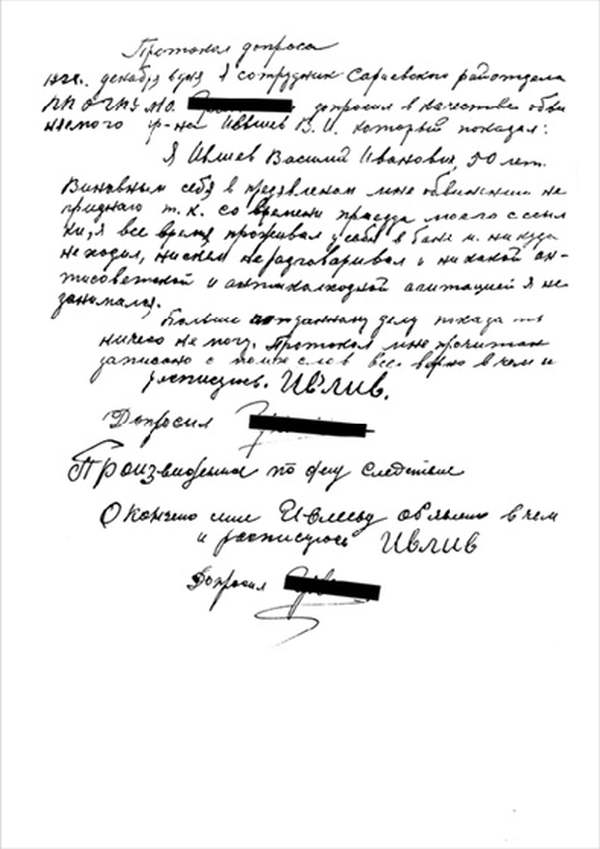 Протокол допроса
декабря дня я сотрудник Сараевского райотдела
ПП ОГПУ МО. допросил в качестве обви
няемого гр-на Ивлиев В.И. который показал:
Я Ивлиев Василий Иванович, 50 лет.
Виновным себя в предявленом мне обвинении не
признаю т.к. со времени приезда моего с ссыл
ки, я все время проживал у себя в бане и никуда
не ходил, ни с кем не разговаривал и никакой ан-
тисоветской и антиколхозной агитацией я не
занимался.
Больше по данному делу показать
ничего не могу. Протокол мне прочитан
записано с моих слов все верно в чем и
росписуюсь. Ивлив.
Допросил
Произведения по делу следствие
Окончено мне Ивлеву обявлено в чем
и росписуюсь Ивлив
Допросил